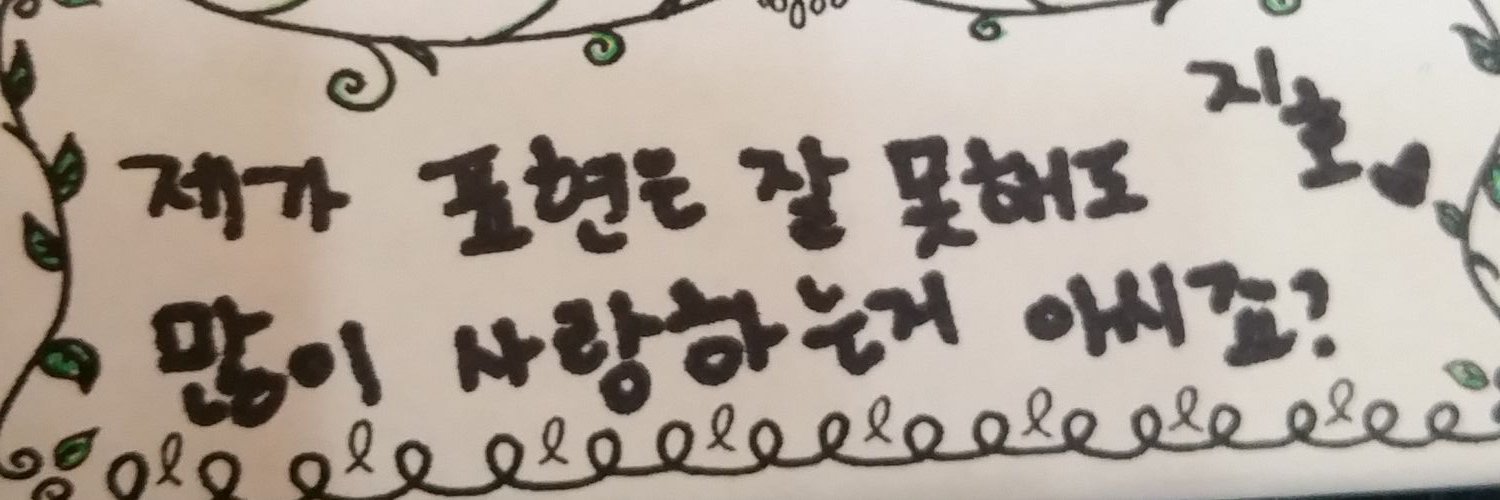 제가 표현은 잘 못해도
많이 사랑하는거 아시죠?
지호♥